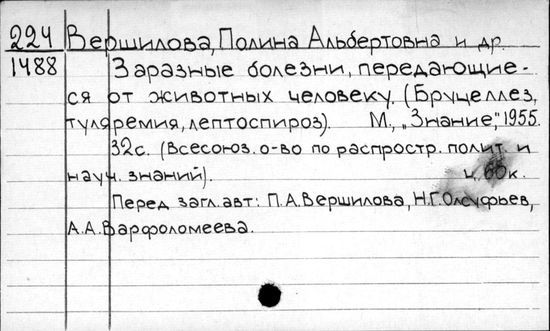 224 Вершилова, Полина Альбертовна и др.
1488 Заразные болезни, передающие-
ся от животных человеку. (Бруцеллез,
туляремия, лептоспироз). М., „Знание", 1955.
32с. (Всесоюз. о-во по распростр. полит. и
науч. знаний). ц. 60к.
Перед загл. авт: П.А.Вершилова, Н.Г.Олсуфьев,
А.А.Варфоломеева.